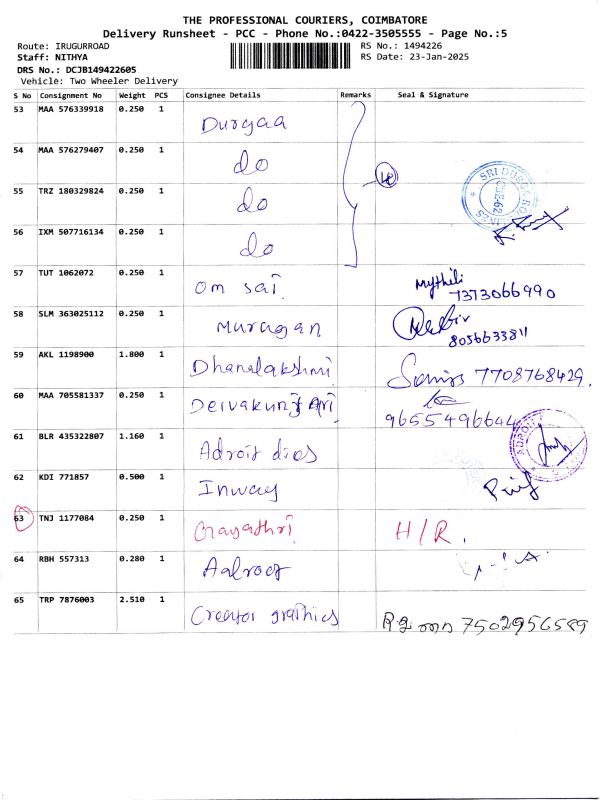 THE PROFESSIONAL COURIERS, COIMBATORE
Delivery Runsheet - PCC - Phone No.:0422-3505555 - Page No.:5
Route: IRUGURROAD RS No.: 1494226
Staff: NITHYA RS Date: 23-Jan-2025
DRS No.: DCJB149422605
Vehicle: Two Wheeler Delivery
S No Consignment No Weight PCS Consignee Details Remarks Seal & Signature
53 MAA 576339918 0.250 1 Durgaa
54 MAA 576279407 0.250 1 do
55 TRZ 180329824 0.250 1 do
56 IXM 507716134 0.250 1 do
57 TUT 1062072 0.250 1 Om sai Mythili
7373066990
58 SLM 363025112 0.250 1 Murugan
8056633811
59 AKL 1198900 1.800 1 Dhanalakshmi 7708768429
60 MAA 705581337 0.250 1
9655496644
61 BLR 435322807 1.160 1 Adroit dies
62 KDI 771857 0.500 1 Inway
63 TNJ 1177084 0.250 1 Gayathri H/R.
64 RBH 557313 0.280 1
65 TRP 7876003 2.510 1 Creator graphics 7502956589